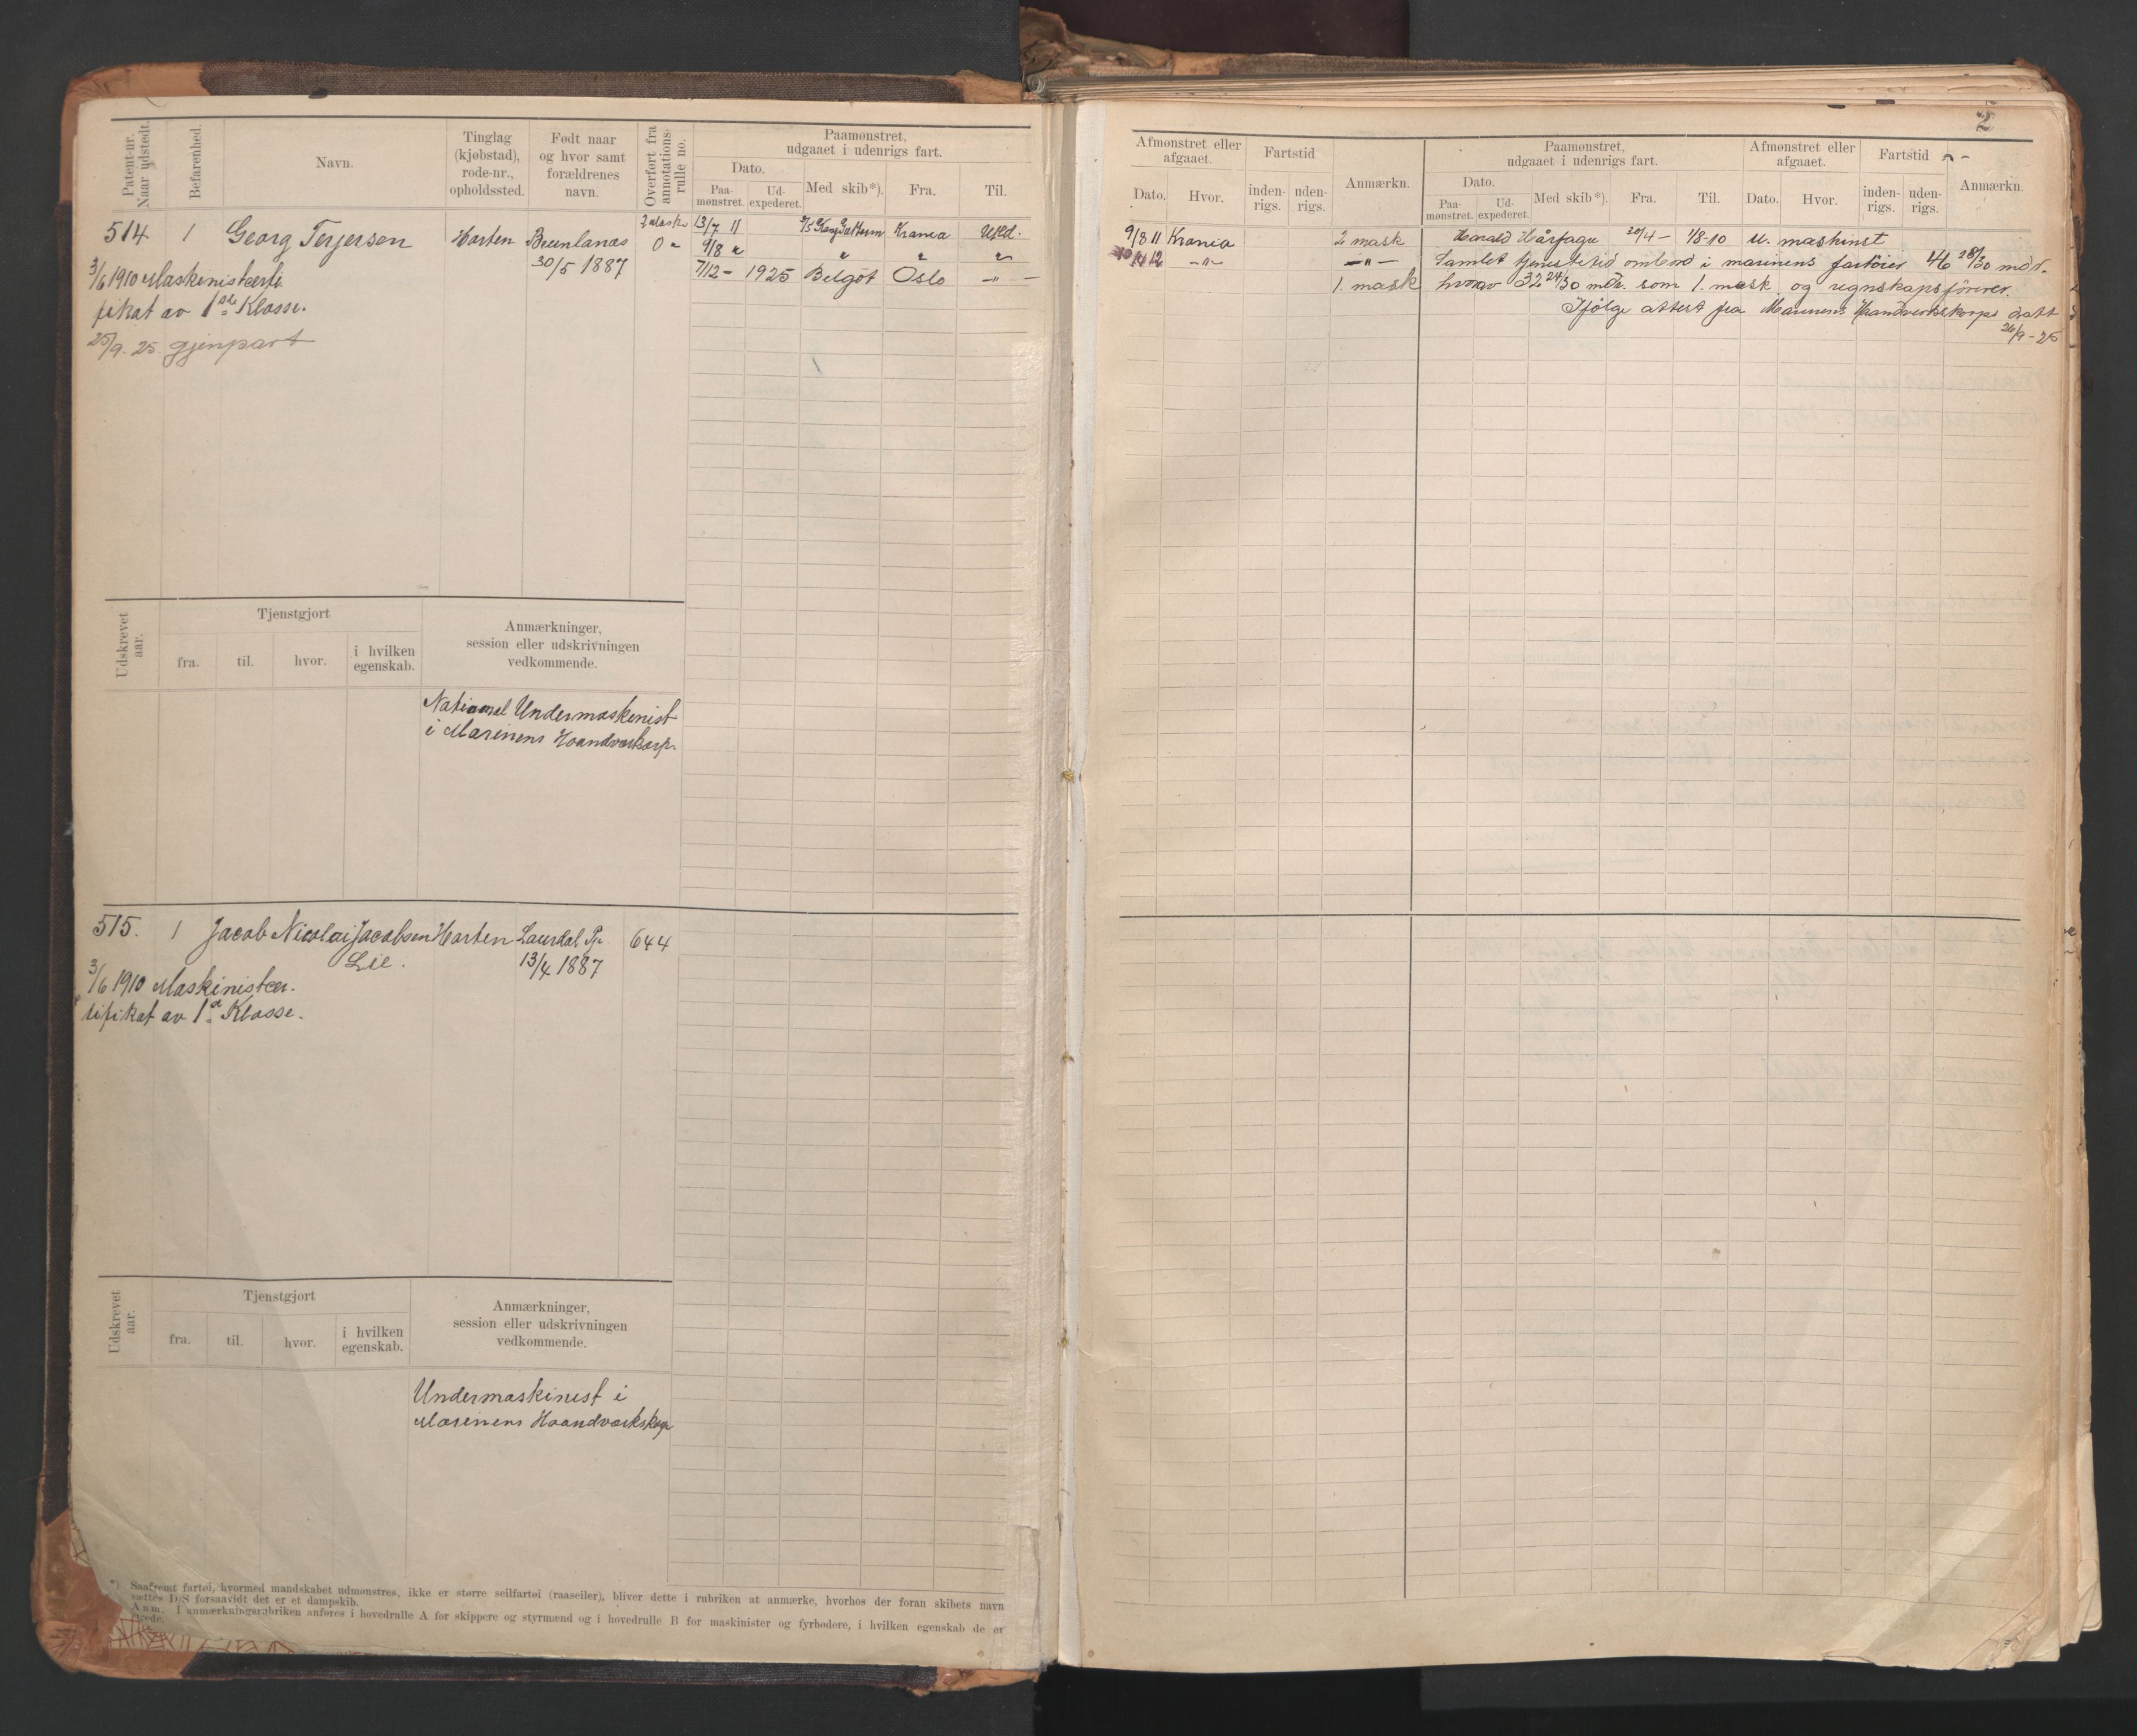 Patent-nr. Naar udstedt.
Befarenhed.
Navn.
Tinglag (kjøbstad), rode-nr., opholdssted.
Født naar og hvor samt forældrenes navn.
Overført fra annotations-rulle no.
Paamønstret, udgaaet i udenrigs fart.
Dato.
Paa-mønstret.
Ud-expederet.
Med skib*).
Fra.
Til.
514 1 Georg Terjersen Horten Brunlanæs 13/7 11 Krania Utld.
30/5 1887 0 " 9/8 " " " "
3/6 1910 Maskinistcerti- 7/12 - 1925 Belgot Oslo -"-
fikat av 1ste Klasse.
25/9. 25. gjenpart
Udskrevet aar.
Tjenstgjort
fra.
til.
hvor.
i hvilken egenskab.
Anmærkninger, session eller udskrivningen vedkommende.
National Undermaskinist
i Marinens
515. 1 Jacob Nicolai Jacobsen Horten Laurdal 644
Lie. 13/4 1887
3/6 1910 Maskinistcer-
tifikat av 1ste Klasse.
Udskrevet aar.
Tjenstgjort
fra.
til.
hvor.
i hvilken egenskab.
Anmærkninger, session eller udskrivningen vedkommende.
Undermaskinist i
Marinens
*) Saafremt fartøi, hvormed mandskabet udmønstres, ikke er større seilfartøi (raaseiler), bliver dette i rubriken at anmærke, hvorhos der foran skibets navn
sættes D/S forsaavidt det er et dampskib.
Anm. I anmærkningsrubriken anføres i hovedrulle A for skippere og styrmænd og i hovedrulle B for maskinister og fyrbødere, i hvilken egenskab de er
2
Afmønstret eller afgaaet.
Dato.
Hvor.
Fartstid
inden-rigs.
uden-rigs.
Anmærkn.
Paamønstret, udgaaet i udenrigs fart.
Dato.
Paa-mønstret.
Ud-expederet.
Med skib*).
Fra.
Til.
Afmønstret eller afgaaet.
Dato.
Hvor.
Fartstid
inden-rigs.
uden-rigs.
Anmærkn.
9/8 11 Krania 2 mask Harald Hårfagre 20/4 - 1/8-10 U. maskinist
-"- -"- Samlet tjenestetid ombord i marinens fartöier 46 28/30 mdr.
1. mask hvorav 32 24/30 mdr. som 1. mask og regnskapsförer.
Ifölge attest fra Marinens datt
26/9-25